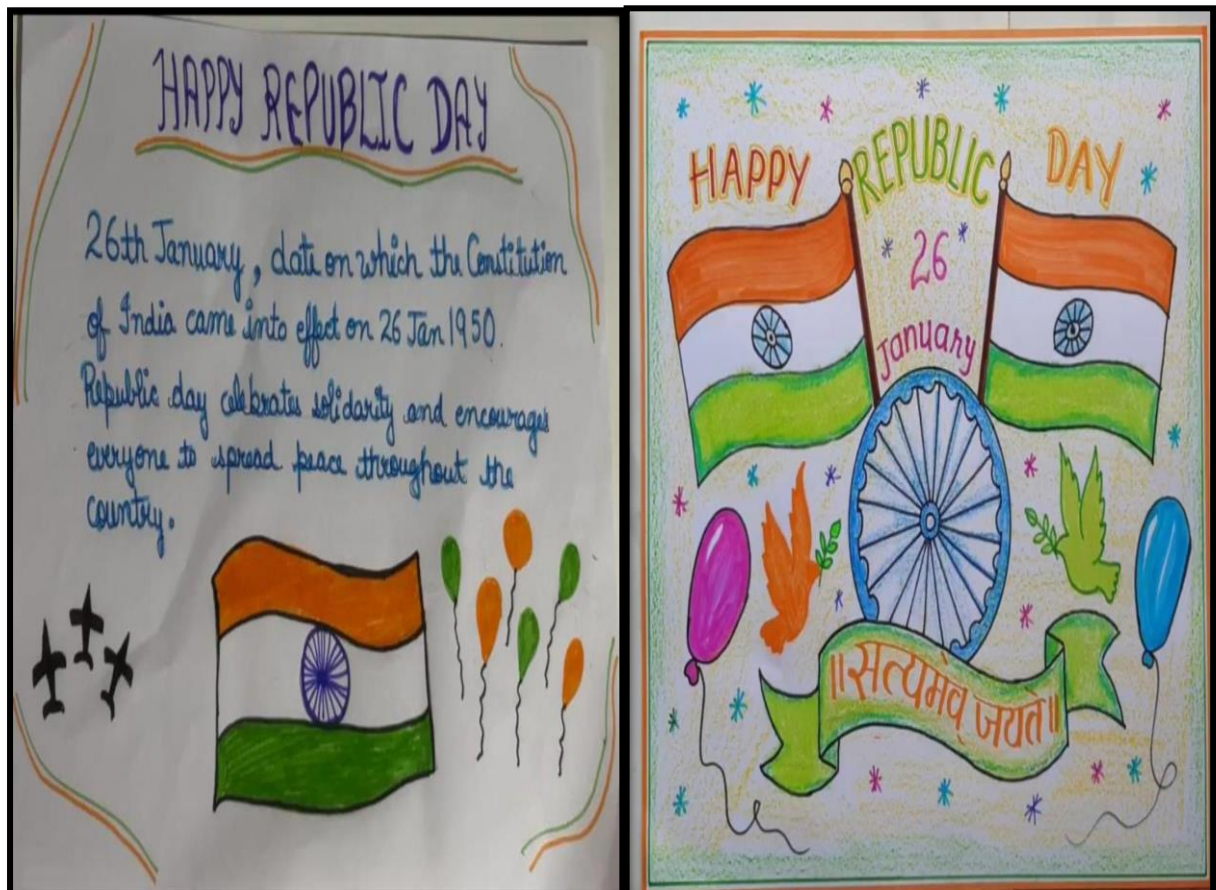 HAPPY REPUBLIC DAY
26th January, date on which the Constitution
of India came into effect on 26 Jan 1950.
Republic day celebrates solidarity and encourages
everyone to spread peace throughout the
country.
HAPPY REPUBLIC DAY
26
January
॥सत्यमेव जयते॥